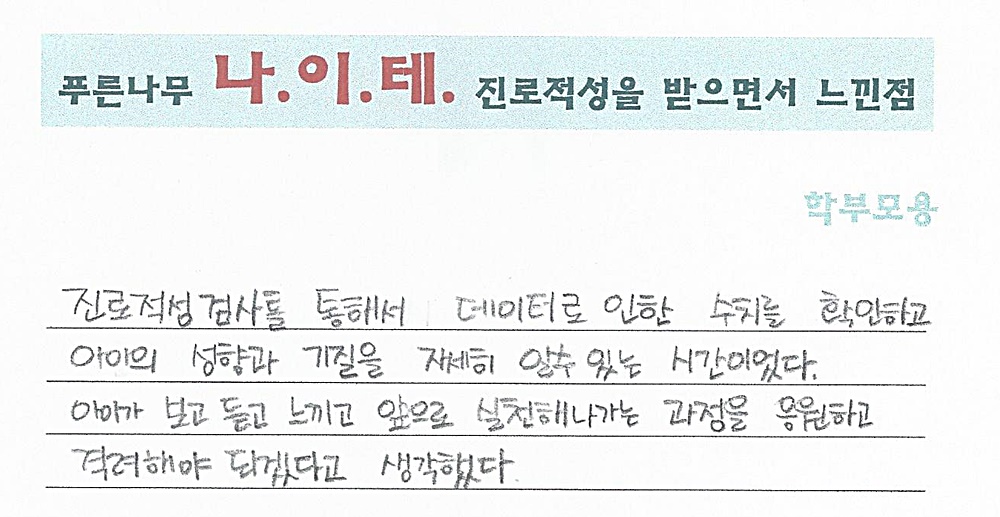 푸른나무 나.이.테. 진로적성을 받으면서 느낀점
학부모용
진로적성검사를 통해서 데이터로 인한 수치를 확인하고
아이의 성향과 기질을 자세히 알수 있는 시간이었다.
아이가 보고 듣고 느끼고 앞으로 실천해나가는 과정을 응원하고
격려해야 되겠다고 생각했다.